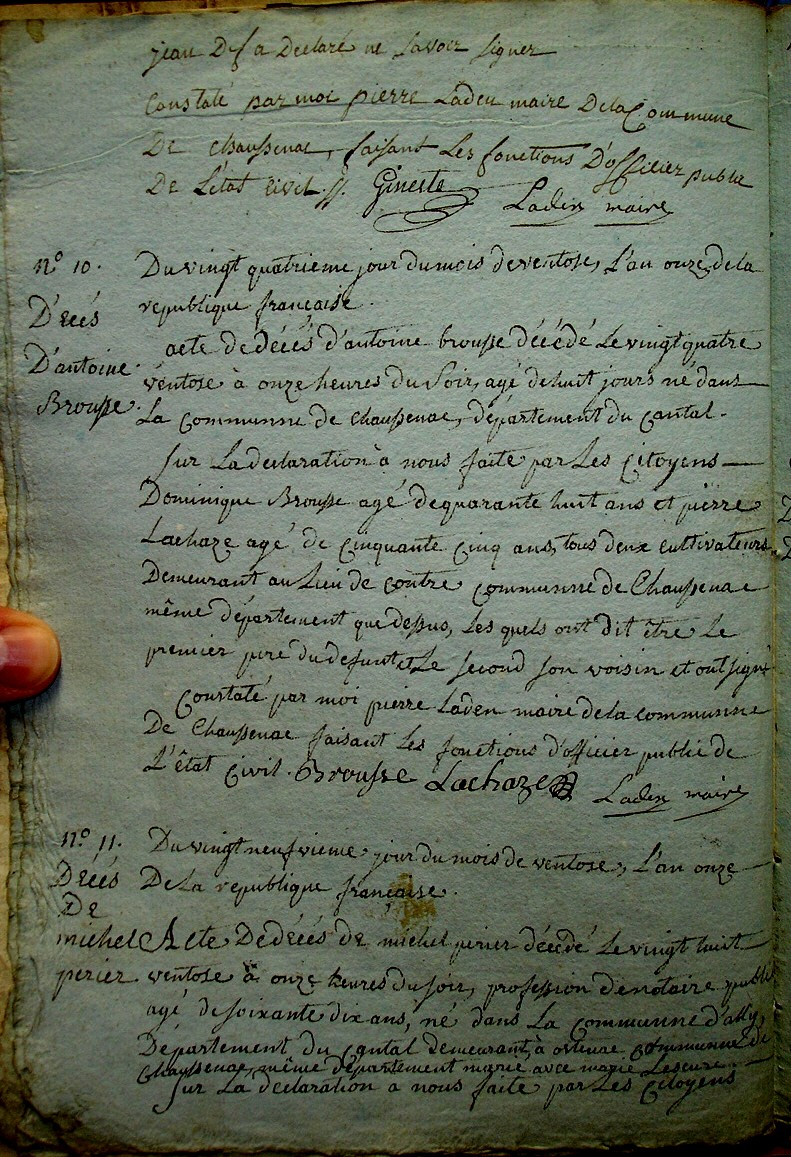 jean Def a Declaré ne savoir signer
Constaté par moi pierre Laden maire Dela Commune
De chaussenac, faisant Les fonctions D'officier public
De L'état civil. //. Gineste
Laden maire
n.º 10.
Décés
D'antoine
Brousse.
Du vingt quatrieme jour du mois de ventose, L'an onze dela
republique française.
acte de décés d'antoine brousse décédé Le vingt quatre
ventose à onze heures du soir, agé de huit jours né dans
La communne de chaussenac, département du cantal.
sur La declaration à nous faite par Les Citoyens
Dominique Brousse agé de quarante huit ans et pierre
Lachaze agé de cinquante cinq ans, tous deux cultivateurs
Demeurant au Lieu de contre communne de Chaussenac
même département que dessus, Les quels ont dit être Le
premier pere du defunt et Le second son voisin et ont signé
Constaté par moi pierre Laden maire dela communne
De Chaussenac faisant Les fonctions d'officier public de
L'état Civil. Brousse Lachaze
Laden maire
n.º 11.
Décés
De
michel
perier
Du vingt neufvieme jour du mois de ventose, L'an onze
De La republique française.
Acte De décés de michel perier décédé Le vingt huit
ventose à onze heures du soir, profession de notaire public
agé de soixante dix ans, né dans La communne d'ally,
Département du cantal demeurant à ostenac communne de
Chaussenac, même département marié avec marie Lescure
sur La declaration a nous faite par Les Citoyens